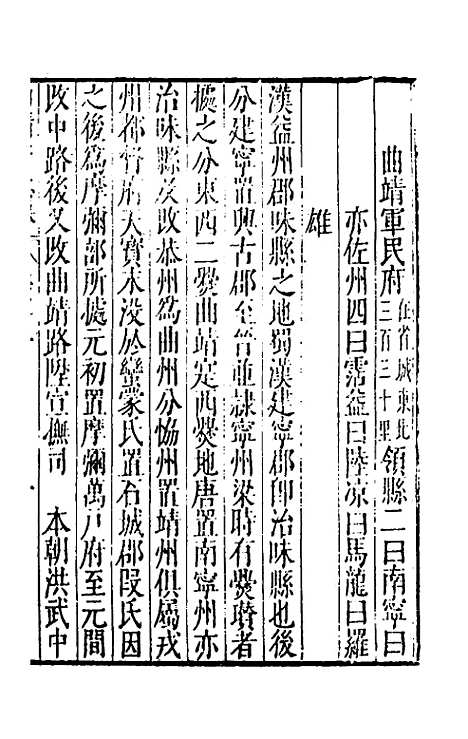 曲靖軍民府在省城東北三百三十里領縣二曰南寧曰
亦佐州四曰霑益曰陸凉曰馬龍曰羅
雄
漢益州郡味縣之地蜀漢建寧郡即治味縣也後
分建寧置興古郡至晉並隸寧州梁時有爨瓚者
據之分東西二爨曲靖定西爨地唐置南寧州亦
治味縣後改恭州為曲州分恊州置靖州俱屬戎
州都督府天寶末没於蠻蒙氏置石城郡段氏因
之後為摩彌部所據元初置摩彌萬户府至元間
改中路後又改曲靖路陞宣撫司　本朝洪武中